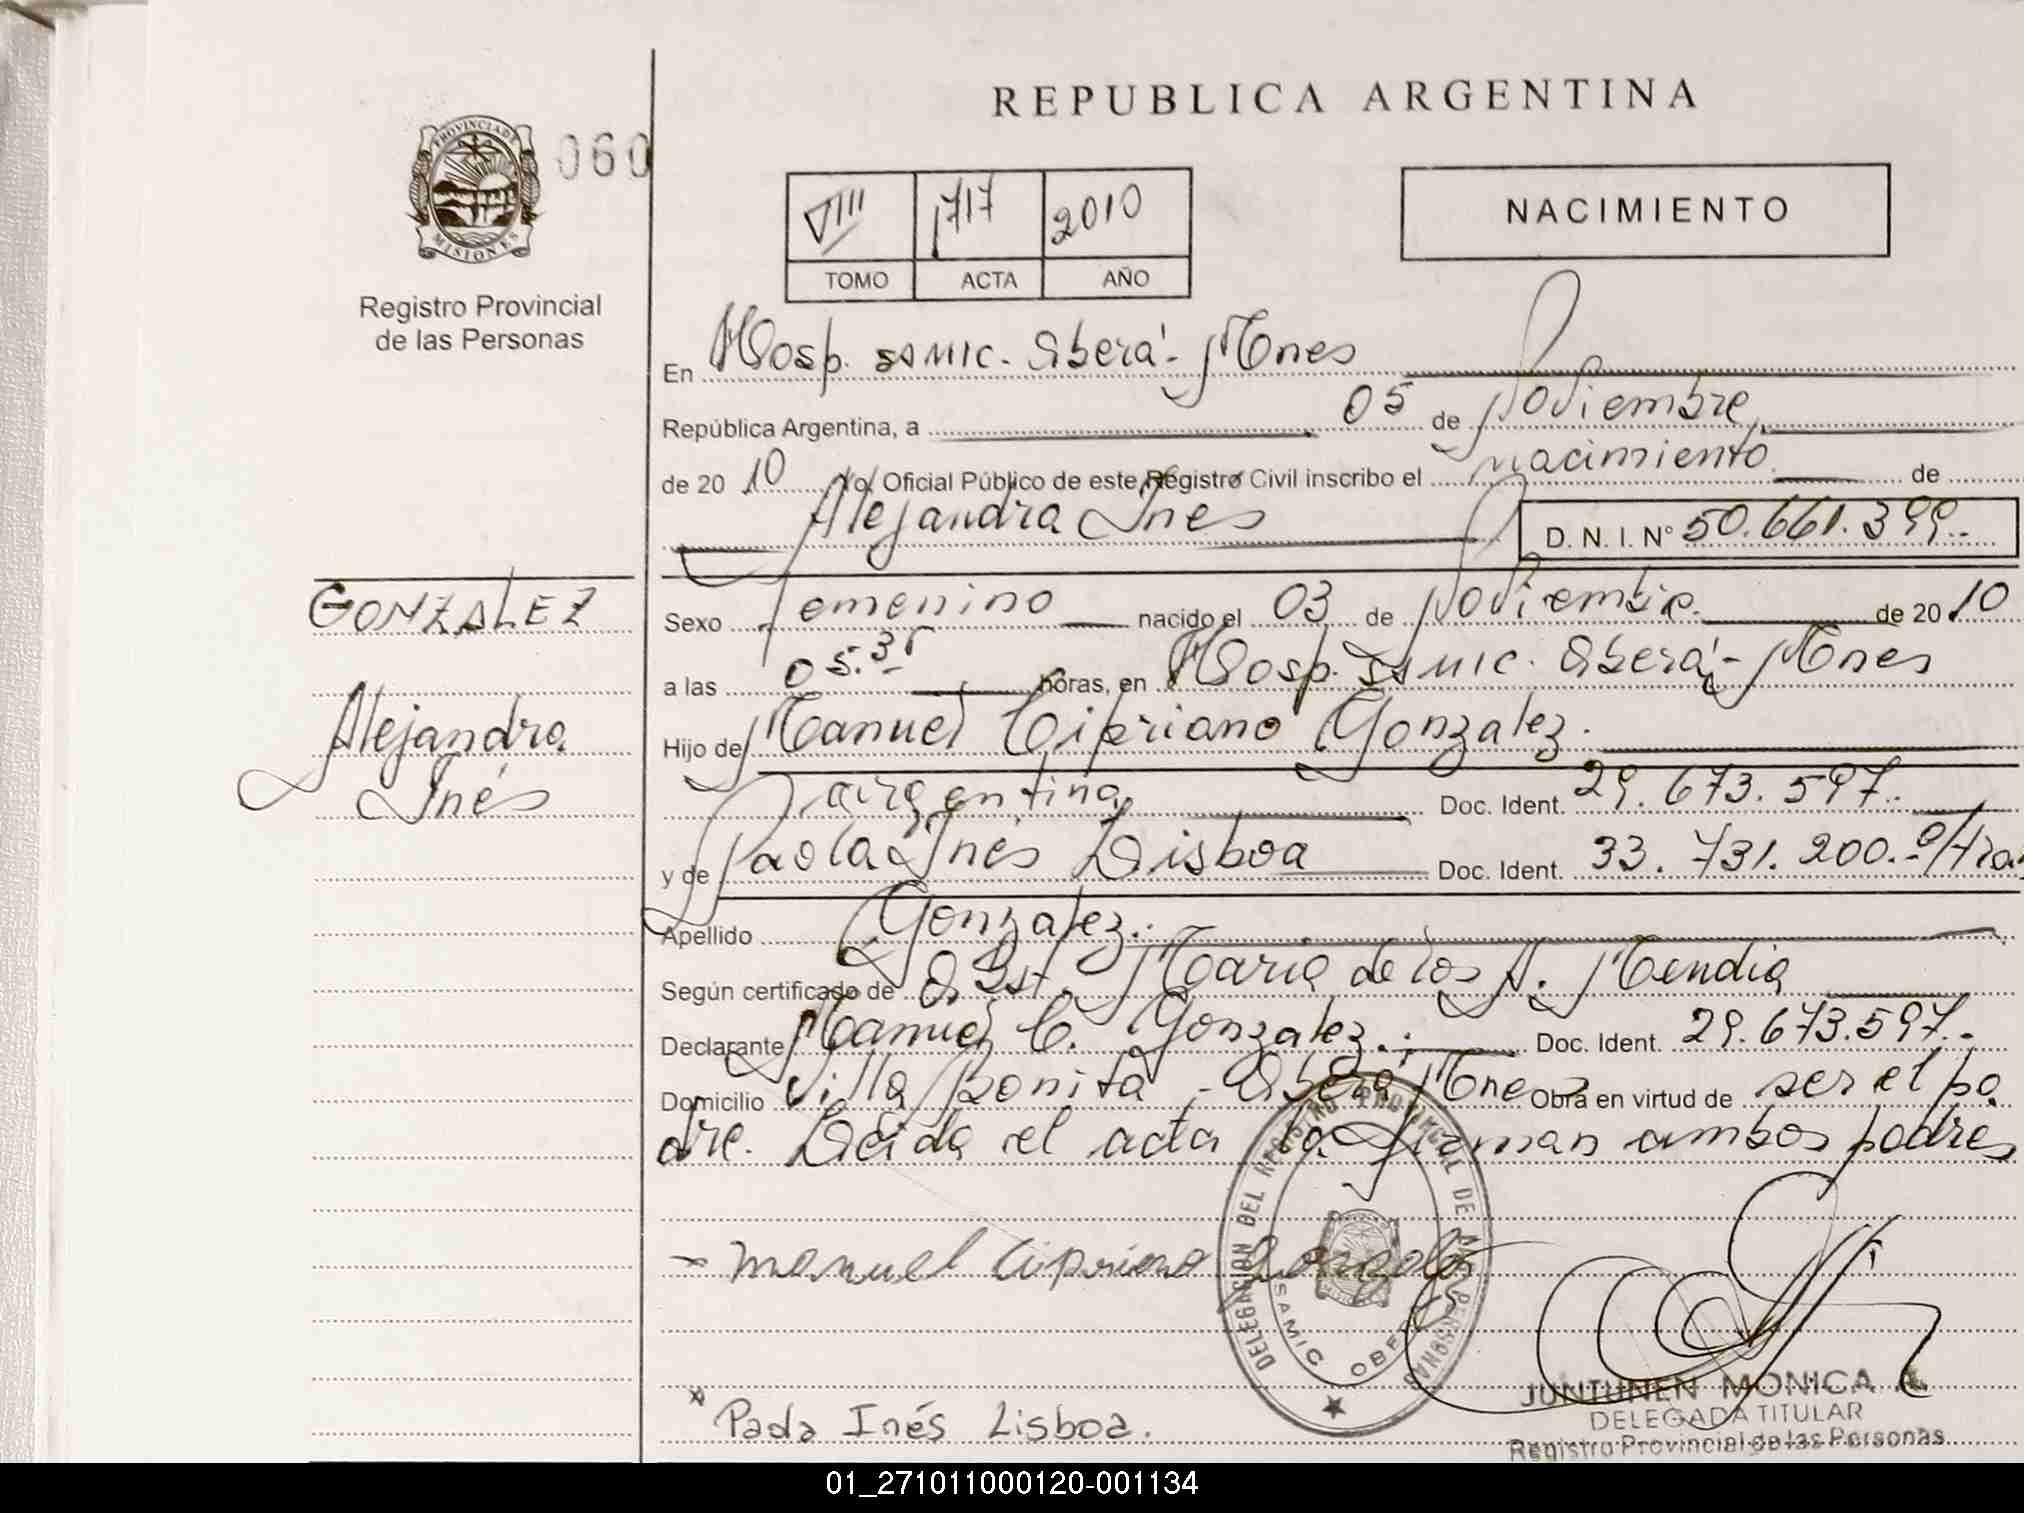 REPUBLICA ARGENTINA
PROVINCIA DE
MISIONES
060
Registro Provincial
de las Personas
VIII 1717 2010
TOMO ACTA AÑO
NACIMIENTO
En Hosp. SAMIC. Oberá - Mnes
República Argentina, a 05 de Noviembre
de 20 10 Yo, Oficial Público de este Registro Civil inscribo el nacimiento de
Alejandra Ines
D. N. I. N° 50.661.399.-
GONZALEZ
Alejandra
Inés
Sexo femenino nacido el 03 de Noviembre. de 20 10
a las 05.35 horas, en Hosp. SAMIC. Oberá - Mnes
Hijo de Manuel Cipriano Gonzalez.
argentina Doc. Ident. 29.673.597.-
y de Paola Inés Lisboa Doc. Ident. 33.731.200.-
Apellido Gonzalez.
Según certificado de Obst. Maria de los A. Mendia
Declarante Manuel C. Gonzalez. Doc. Ident. 29.673.597.-
Domicilio Villa Bonita - Oberá Mnes Obra en virtud de ser el pa
dre. Leida el acta la firman ambos padres
- Manuel Cipriano Gonzalez
DELEGACION DEL REGISTRO PROVINCIAL DE LAS PERSONAS
SAMIC OBERA
* Paola Inés Lisboa.
JUNTUNEN MONICA A.
DELEGADA TITULAR
Registro Provincial de las Personas
01_271011000120-001134